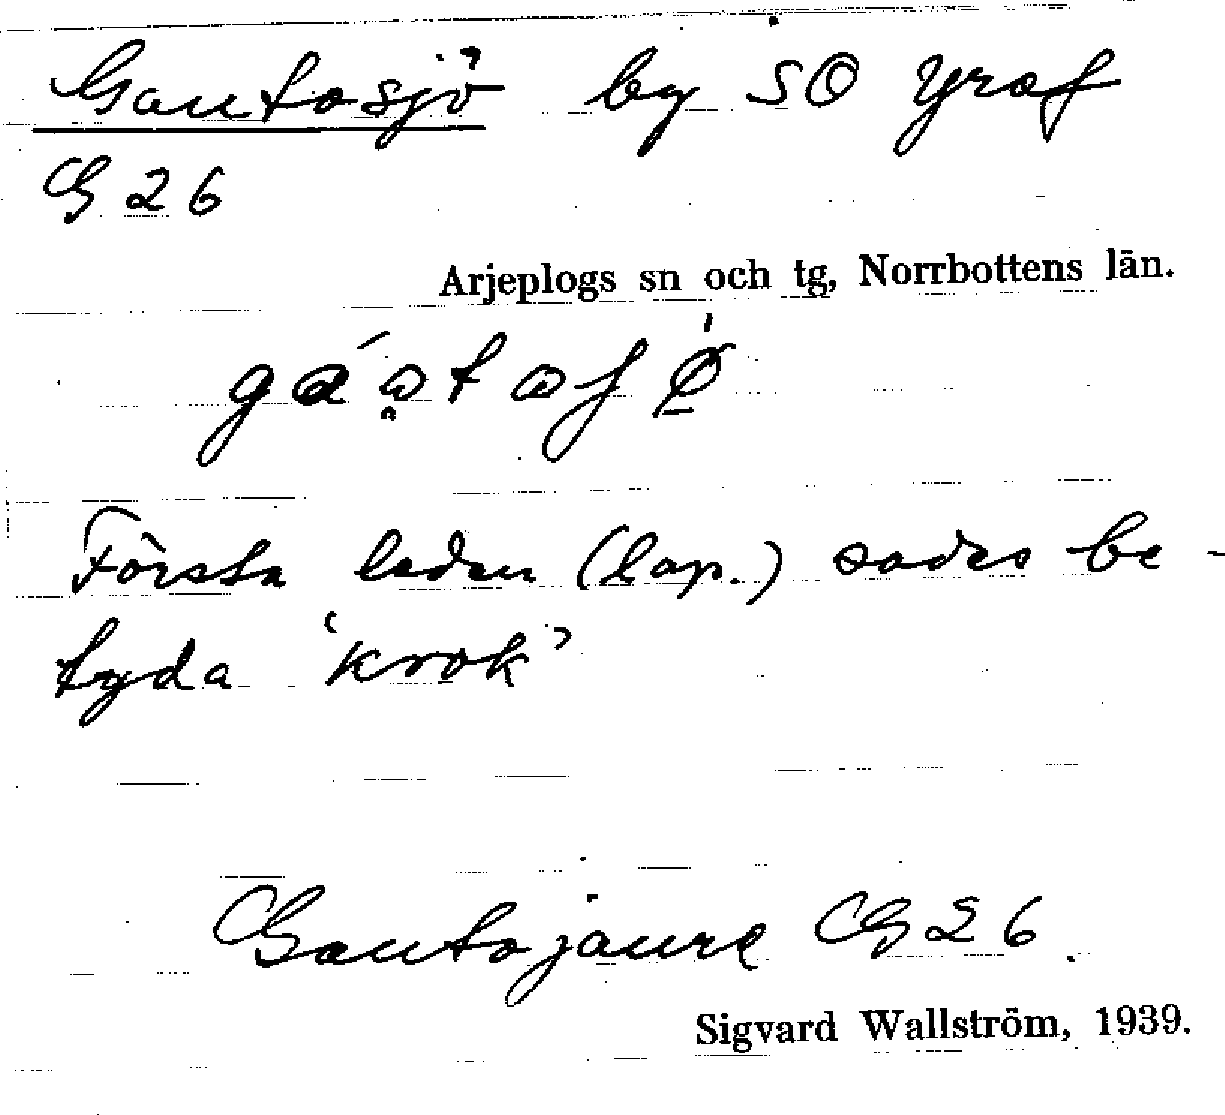 Gautosjö by SO Yraf
G 26
Arjeplogs sn och tg, Norrbottens län.
Första leden (lap.) sades be-
tyda 'krok'
Gautojaure G 26.
Sigvard Wallström, 1939.